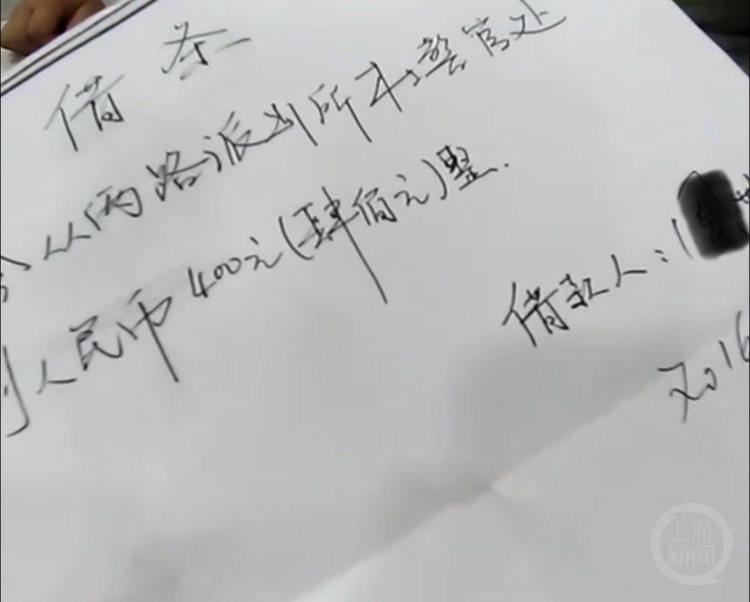 借条
今从两路派出所警官处
到人民币400元(肆佰元)整.
借款人:
2016
上游新闻